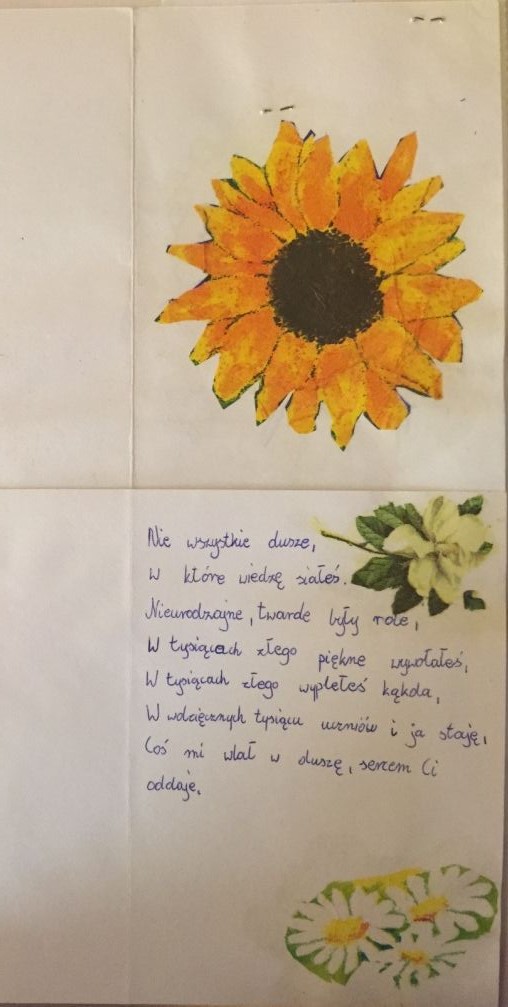 Nie wszystkie dusze,
W które wiedzę siałeś.
Nieurodzajne, twarde były role,
W tysiącach złego piękne wywołałeś,
W tysiącach złego wyplełeś kąkola,
W wdzięcznych tysiącu uczniów i ja staję,
Coś mi wlał w duszę, sercem Ci
oddaję.